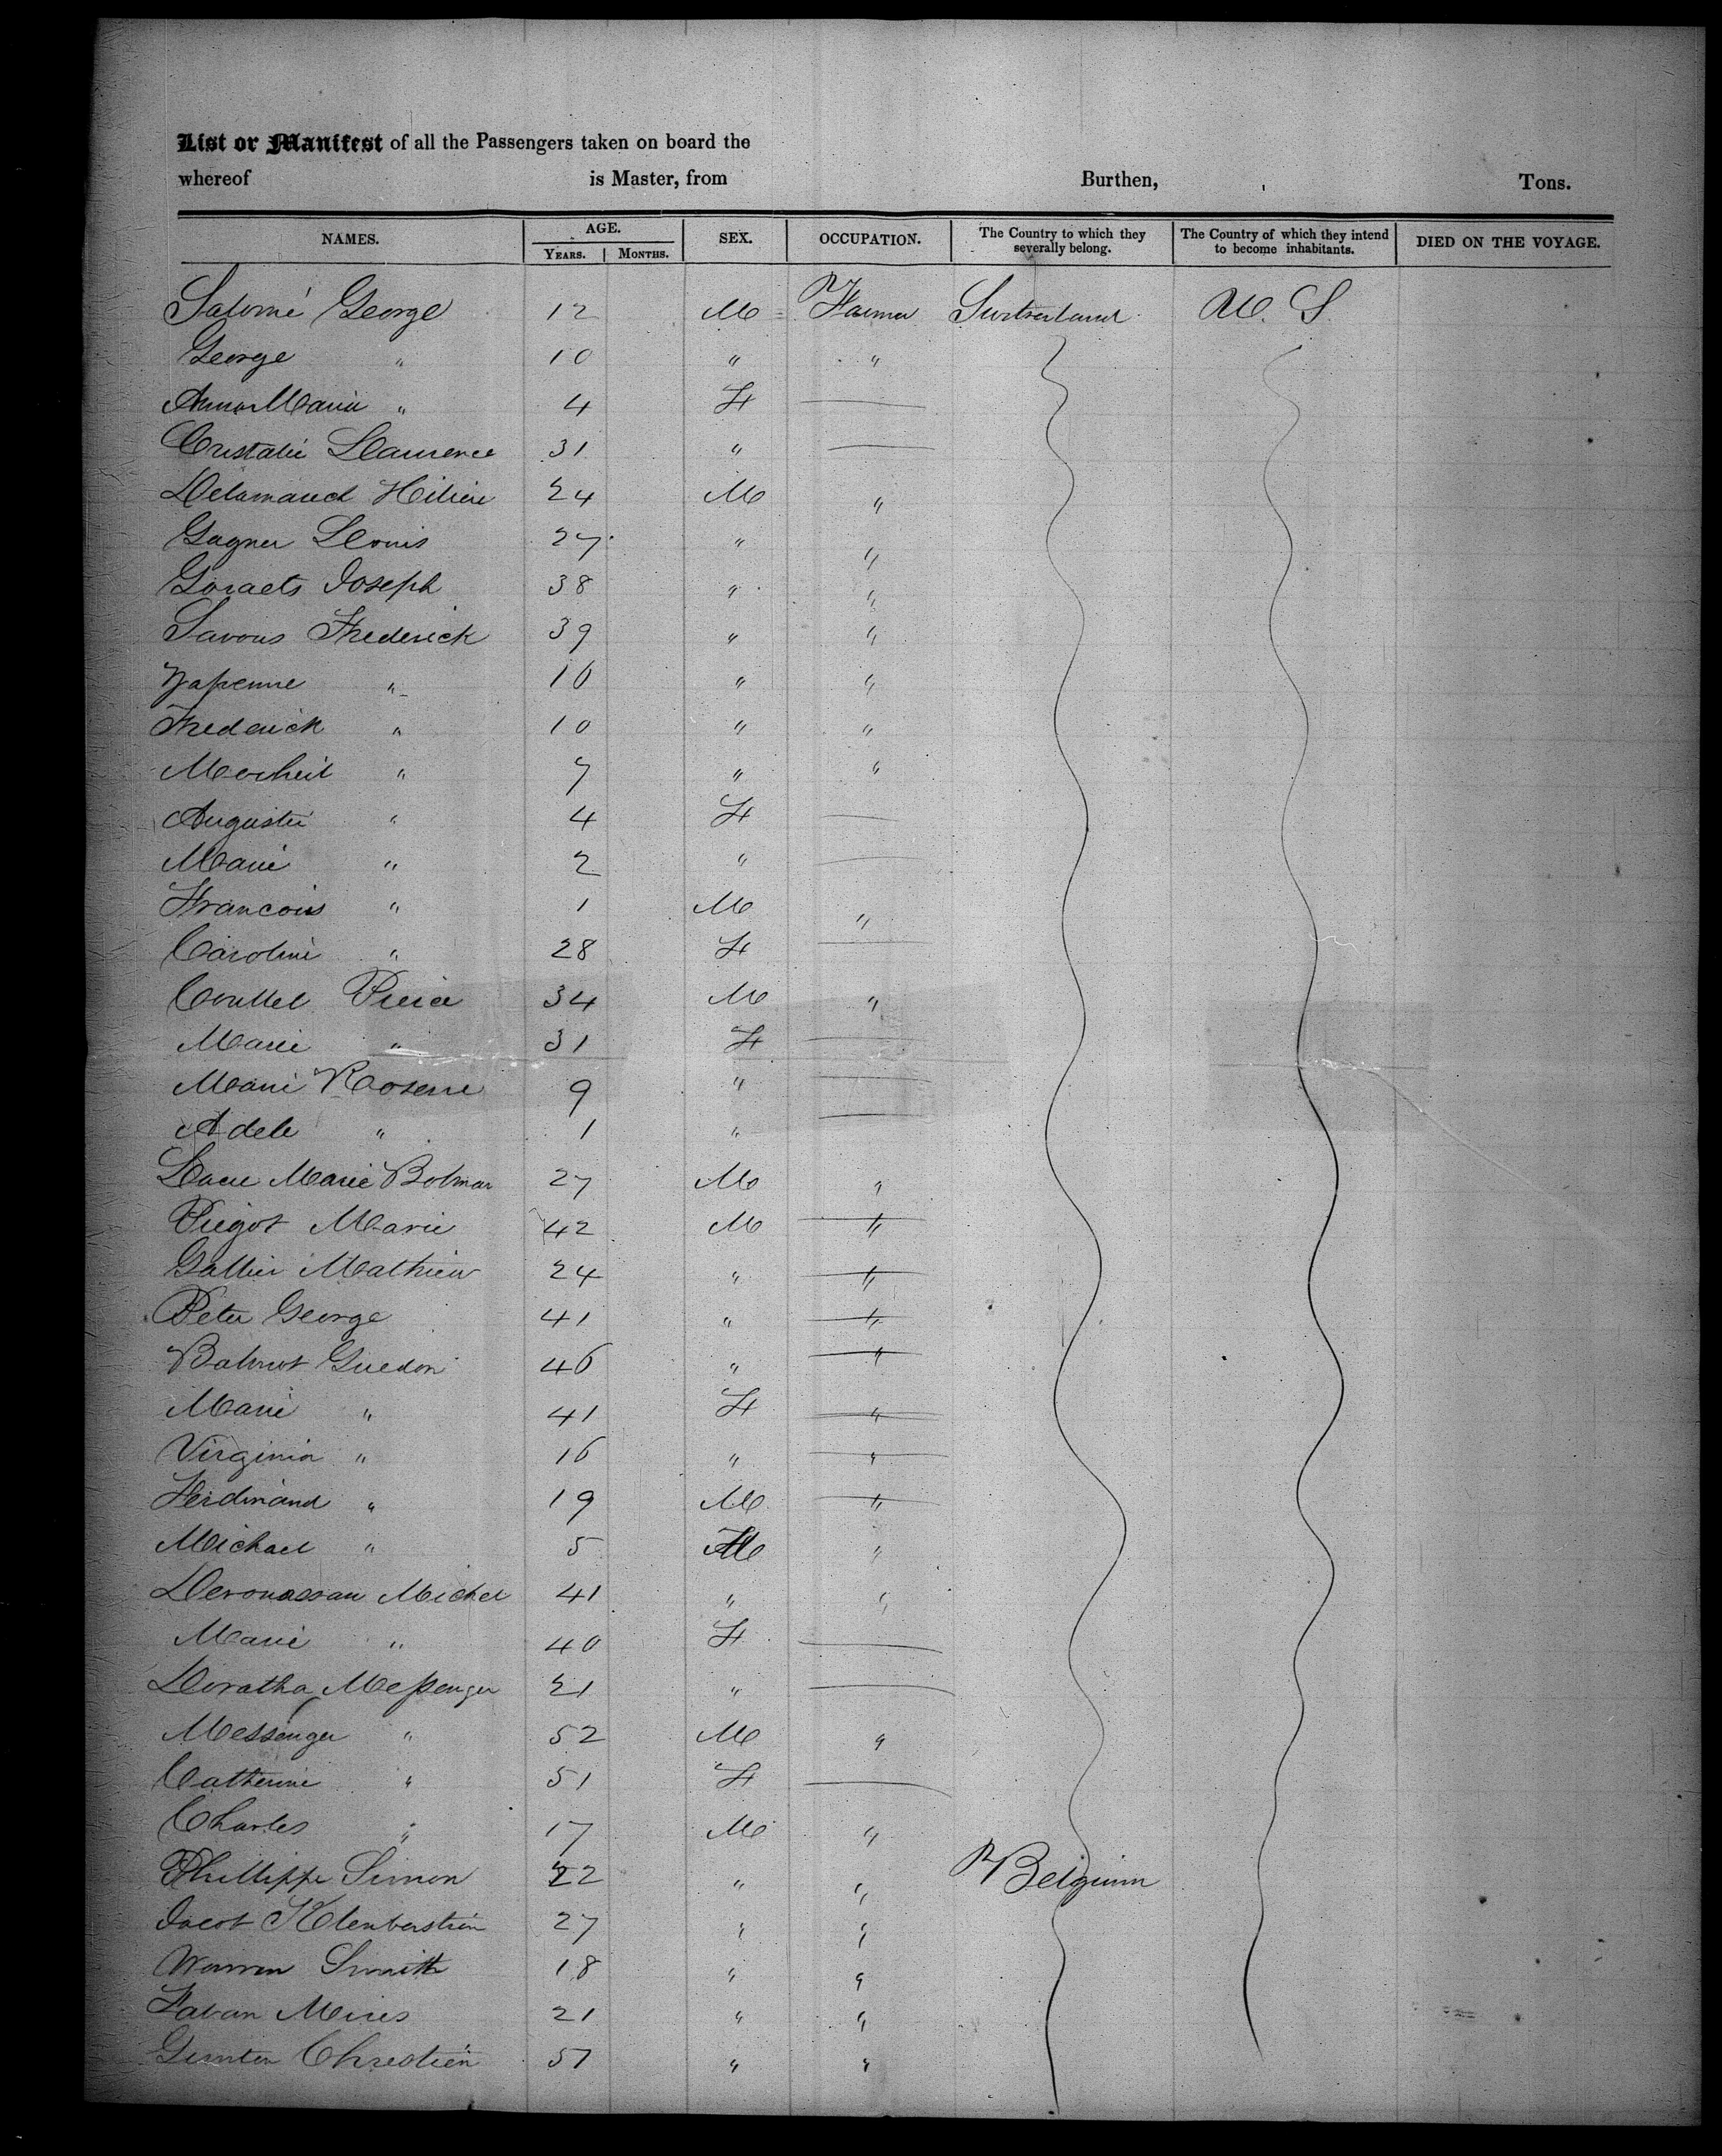 List or Manifest of all the Passengers taken on board the
whereof is Master, from Burthen, Tons.
NAMES. AGE. SEX. OCCUPATION. The Country to which they severally belong. The Country of which they intend to become inhabitants. DIED ON THE VOYAGE.
YEARS. MONTHS.
Salomé George 12 M Farmer Switzerland U. S.
George " 10 " "
Anna Maria " 4 F
Laurence 31 "
Delamauch 24 M "
Gagner Louis 27 " "
Goraets Joseph 38 " "
Savous Frederick 39 " "
" 16 " "
Frederick " 10 " "
" 7 " "
Auguste " 4 F
Marie " 2 "
Francois " 1 M "
Caroline " 28 F
Pierre 34 M "
Marie " 31 F
Marie 9 "
Adele " 1 "
Marie 27 M "
Marie 42 M "
Mathieu 24 " "
Peter George 41 " "
Guedon 46 " "
Marie " 41 F "
Virginia " 16 " "
Ferdinand " 19 M "
Michael " 5 M "
Michel 41 " "
Marie " 40 F
Doratha Messenger 21 "
Messenger " 52 M "
Catherine " 51 F
Charles " 17 M "
Phillippe Simon 22 " " Belgium
27 " "
Smith 18 " "
21 " "
Chreotien 51 " "